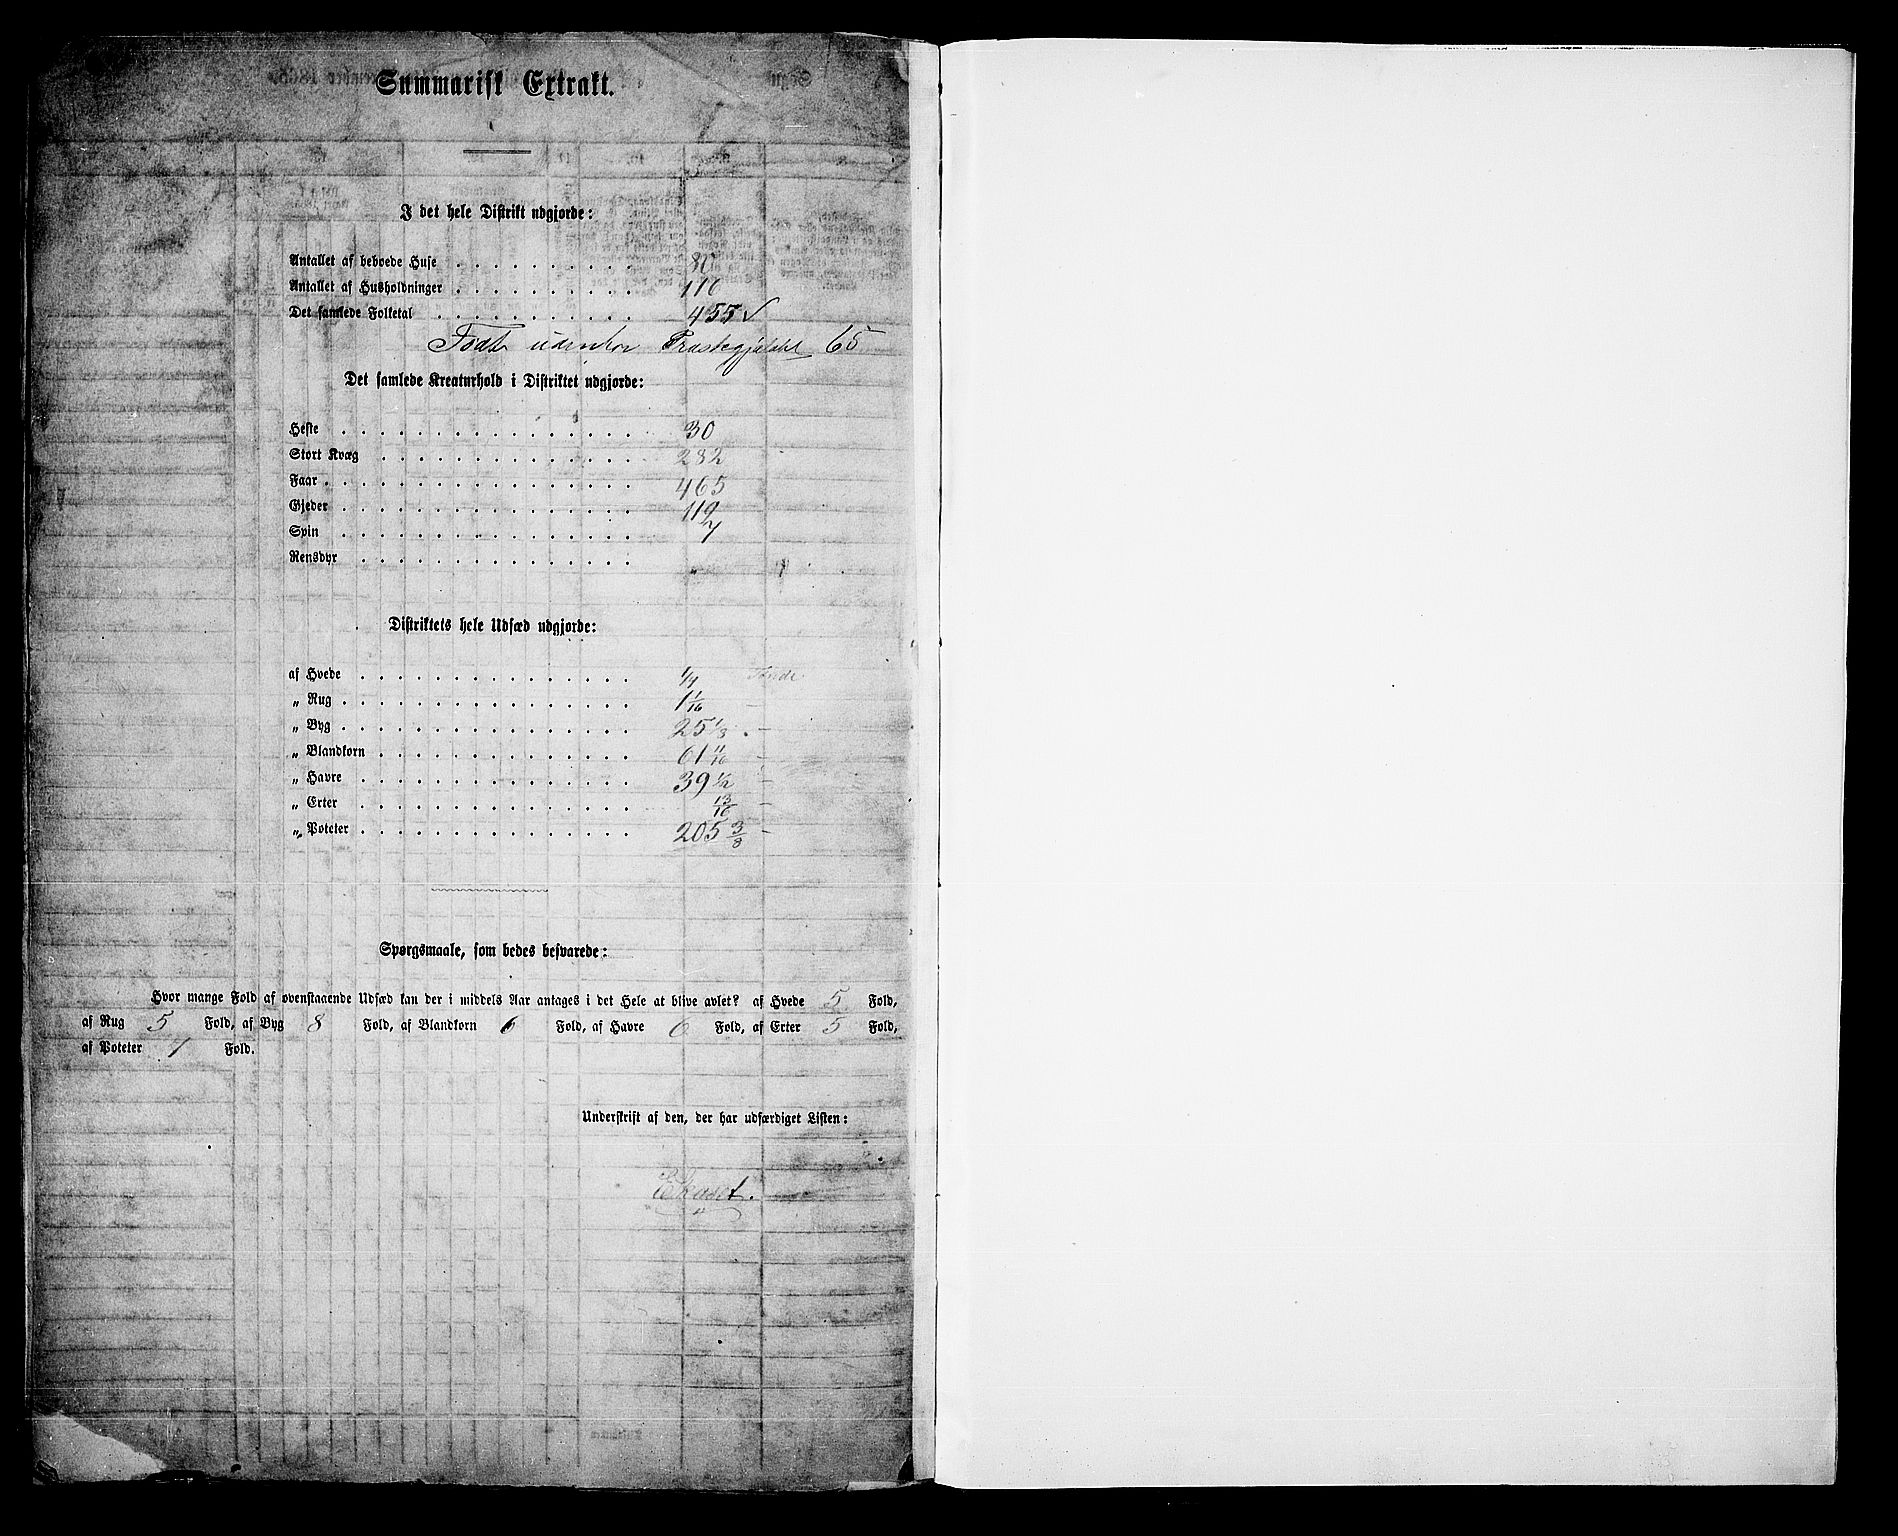 Summarisk Extrakt.
I det hele Distrikt udgjorde:
Antallet af beboede Huse . . . . . . . . . . 80
Antallet af Husholdninger . . . . . . . . . . 110
Det samlede Folketal . . . . . . . . . . . 455 ✓
Født udenfor Præstegjeldet 65
Det samlede Kreaturhold i Distriktet udgjorde:
Heste . . . . . . . . . . . . . . . . 30
Stort Kvæg . . . . . . . . . . . . . . 282
Faar . . . . . . . . . . . . . . . . . 465
Gjeder . . . . . . . . . . . . . . . . 119
Svin . . . . . . . . . . . . . . . . 7
Rensdyr . . . . . . . . . . . . . . . "
Distriktets hele Udsæd udgjorde:
af Hvede . . . . . . . . . . . . . . . 1/4 Tønde
„ Rug . . . . . . . . . . . . . . . . 1 1/16 –
„ Byg . . . . . . . . . . . . . . . . 25 1/8 –
„ Blandkorn . . . . . . . . . . . . . . 61 11/16 –
„ Havre . . . . . . . . . . . . . . . 39 1/2 –
„ Erter . . . . . . . . . . . . . . . 13/16 –
„ Poteter . . . . . . . . . . . . . . . 205 3/8 –
Spørgsmaale, som bedes besvarede:
Hvor mange Fold af ovenstaaende Udsæd kan der i middels Aar antages i det Hele at blive avlet? af Hvede 5 Fold,
af Rug 5 Fold, af Byg 8 Fold, af Blandkorn 6 Fold, af Havre 6 Fold, af Erter 5 Fold,
af Poteter 7 Fold.
Underskrift af den, der har udfærdiget Listen: